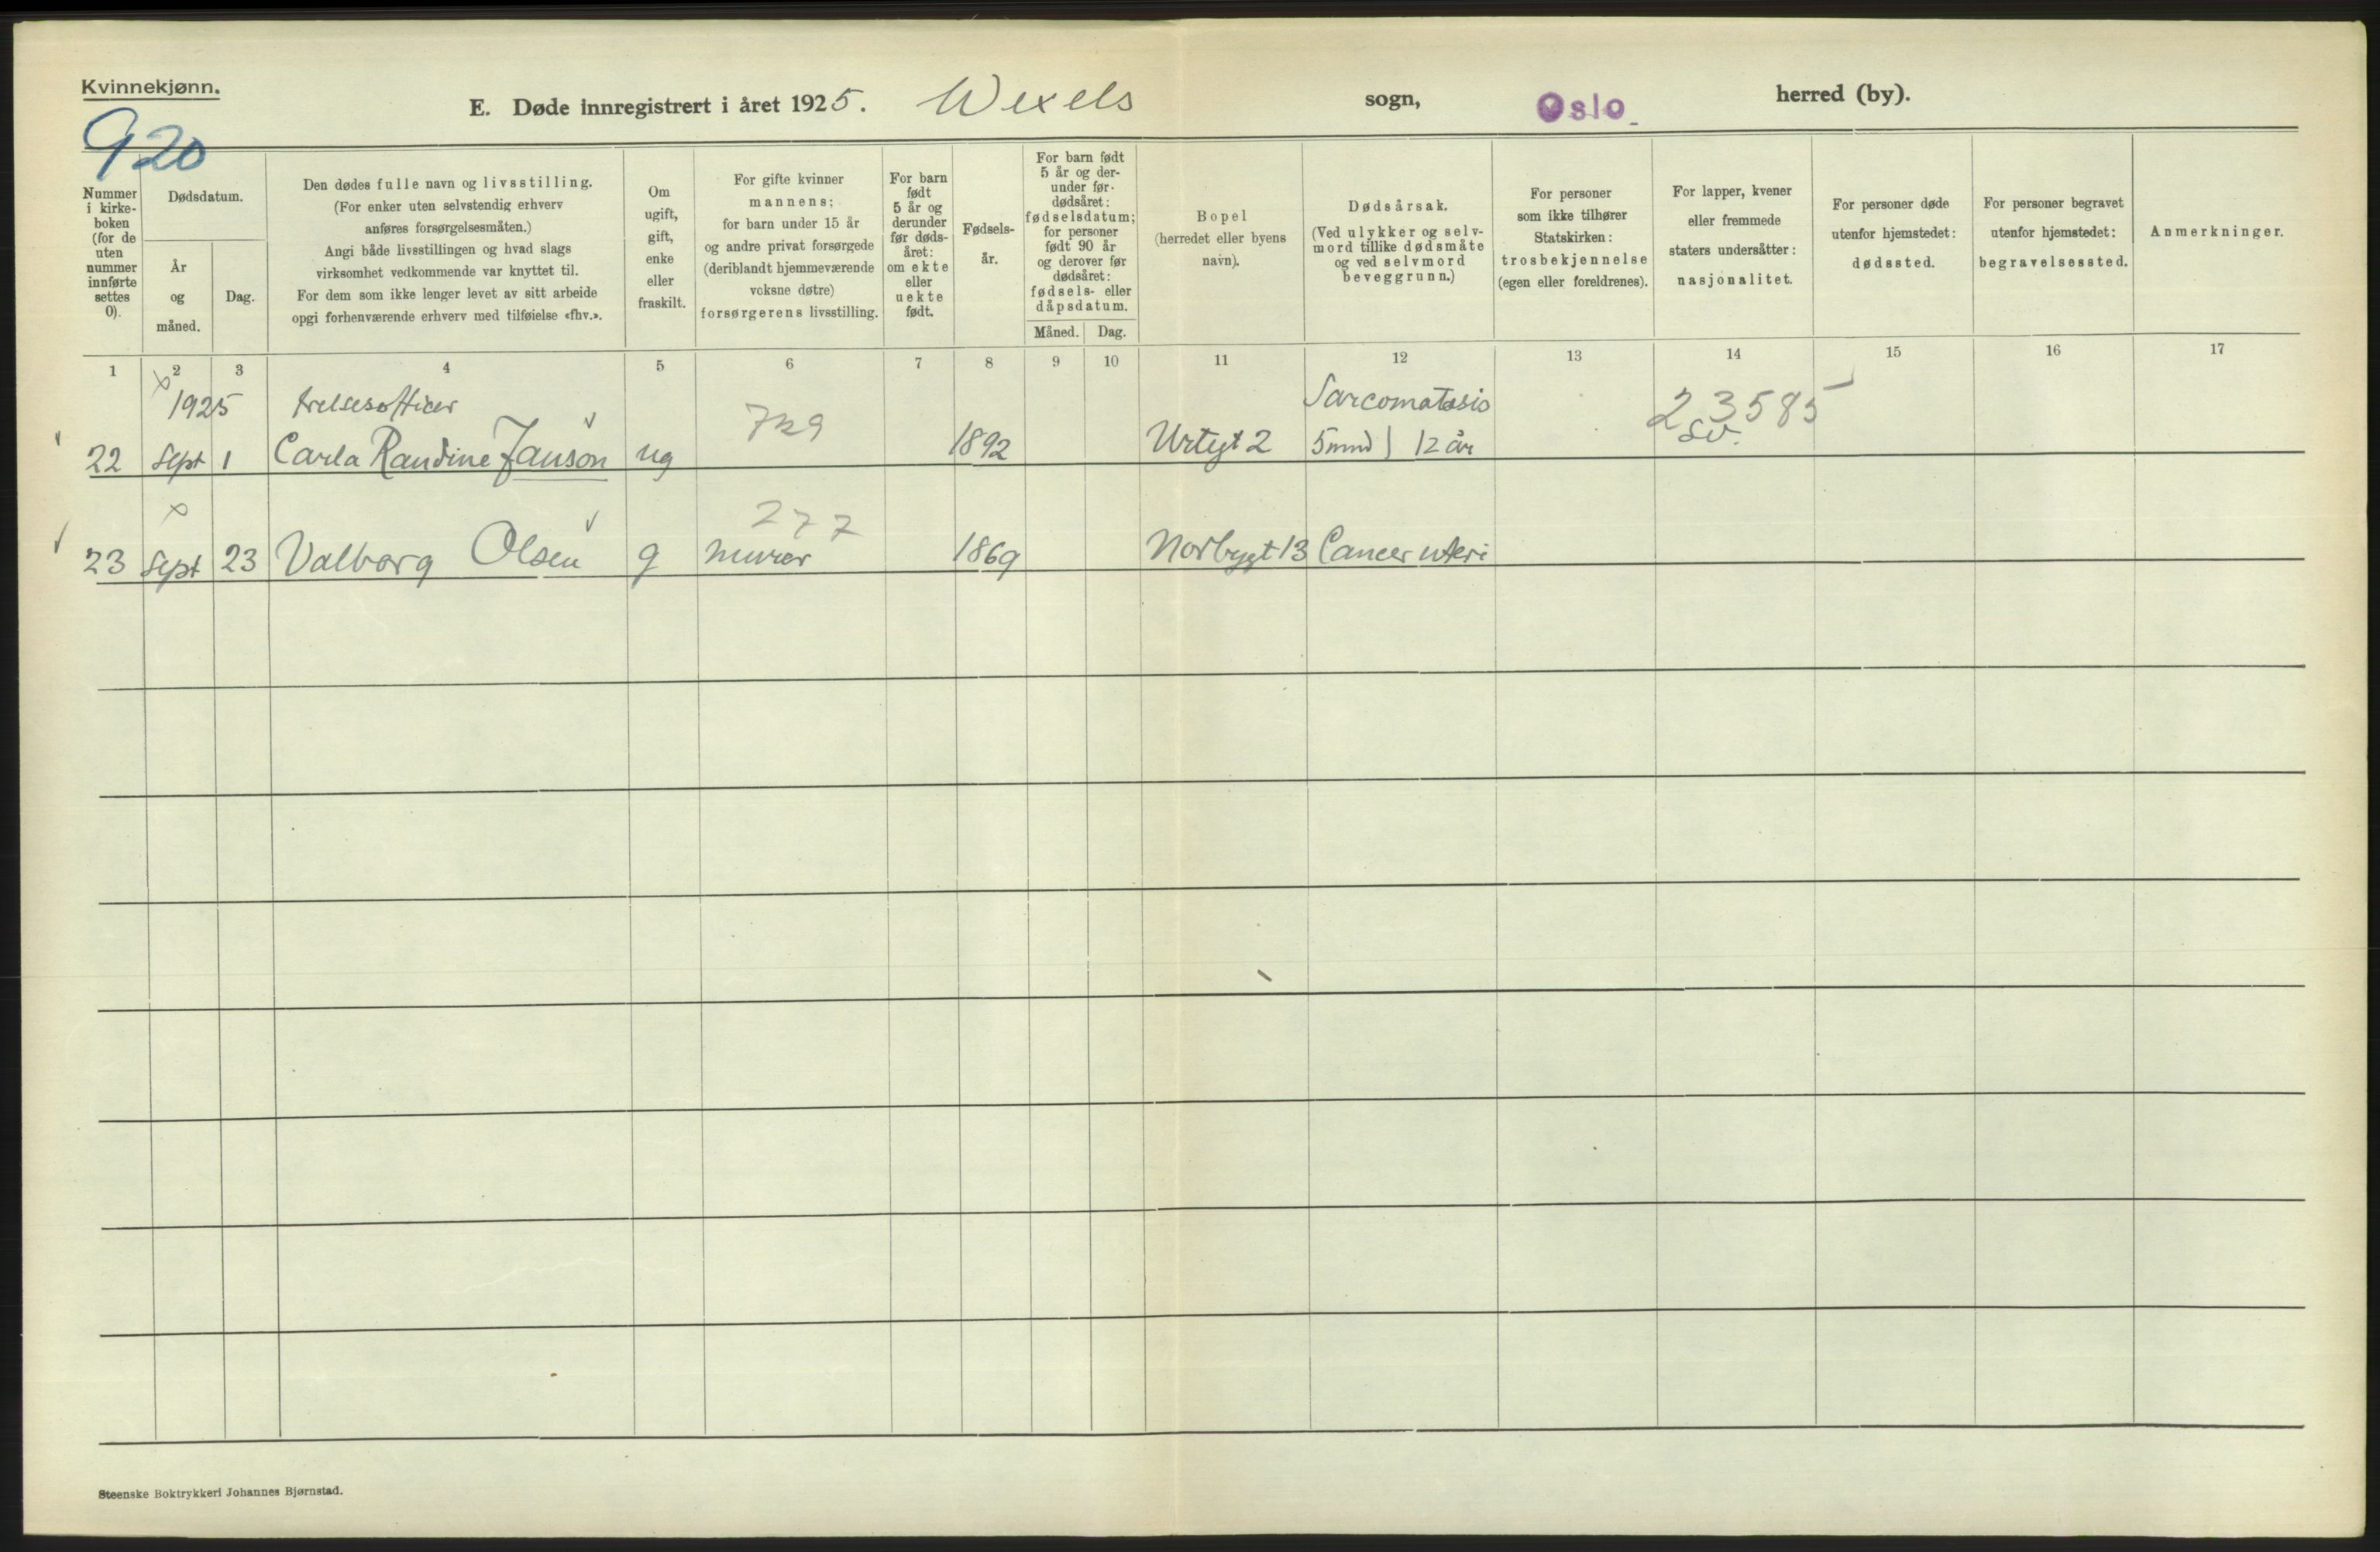 Kvinnekjønn.
920
E. Døde innregistrert i året 1925. Wexels sogn, Oslo herred (by).
Nummer i kirke- boken (for de uten nummer innførte settes 0).
Dødsdatum.
År og måned.
Dag.
Den dødes fulle navn og livsstilling.
(For enker uten selvstendig erhverv
anføres forsørgelsesmåten.)
Angi både livsstillingen og hvad slags
virksomhet vedkommende var knyttet til.
For dem som ikke lenger levet av sitt arbeide
opgi forhenværende erhverv med tilføielse «fhv.».
Om
ugift,
gift,
enke
eller
fraskilt.
For gifte kvinner
mannens;
for barn under 15 år
og andre privat forsørgede
(deriblandt hjemmeværende
voksne døtre)
forsørgerens livsstilling.
For barn
født
5 år og
derunder
før døds-
året:
om ekte
eller
uekte
født.
Fødsels-
år.
For barn født
5 år og der-
under før-
dødsåret:
fødselsdatum;
for personer
født 90 år
og derover før
dødsåret:
fødsels- eller
dåpsdatum.
Måned. Dag.
Bopel
(herredet eller byens
navn).
Dødsårsak.
(Ved ulykker og selv-
mord tillike dødsmåte
og ved selvmord
beveggrunn.)
For personer
som ikke tilhører
Statskirken:
trosbekjennelse
(egen eller foreldrenes).
For lapper, kvener
eller fremmede
staters undersåtter:
nasjonalitet.
For personer døde
utenfor hjemstedet:
dødssted.
For personer begravet
utenfor hjemstedet:
begravelsessted.
Anmerkninger.
1 2 3 4 5 6 7 8 9 10 11 12 13 14 15 16 17
1925 frelsesofficer 729 Sarcomatosis 23585
22 Sept 1 Carla Randine Janson ug 1892 Urtegt 2 5 mnd | 12 år sv.
277
23 Sept 23 Valborg Olsen g murer 1869 Norbygt 13 Cancer uteri
Steenske Boktrykkeri Johannes Bjørnstad.